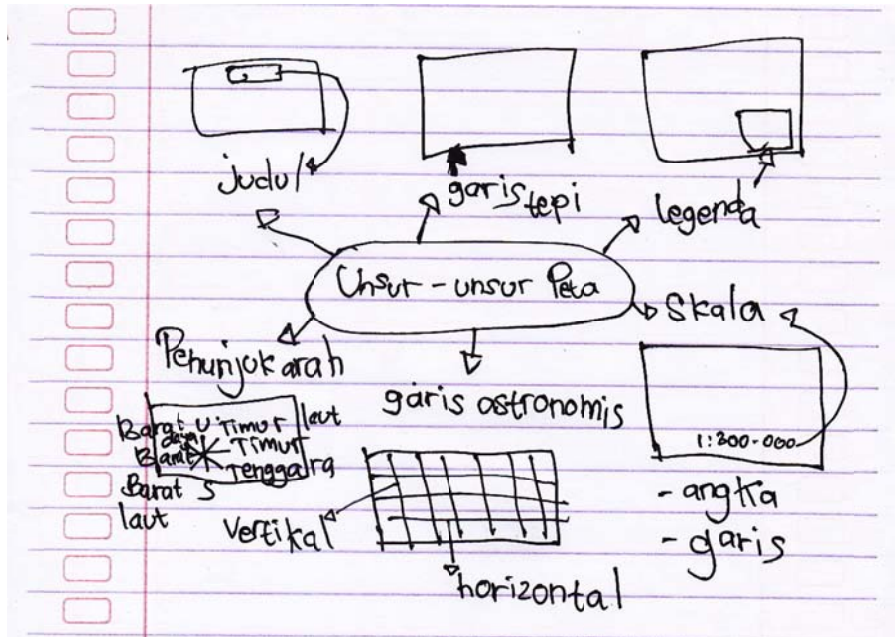 judul
garis tepi
legenda
Unsur - unsur Peta
Skala
1:200.000
- angka
- garis
Penunjuk arah
Barat U Timur laut
daya
Barat Timur
Tenggara
Barat S
laut
garis astronomis
Vertikal
horizontal